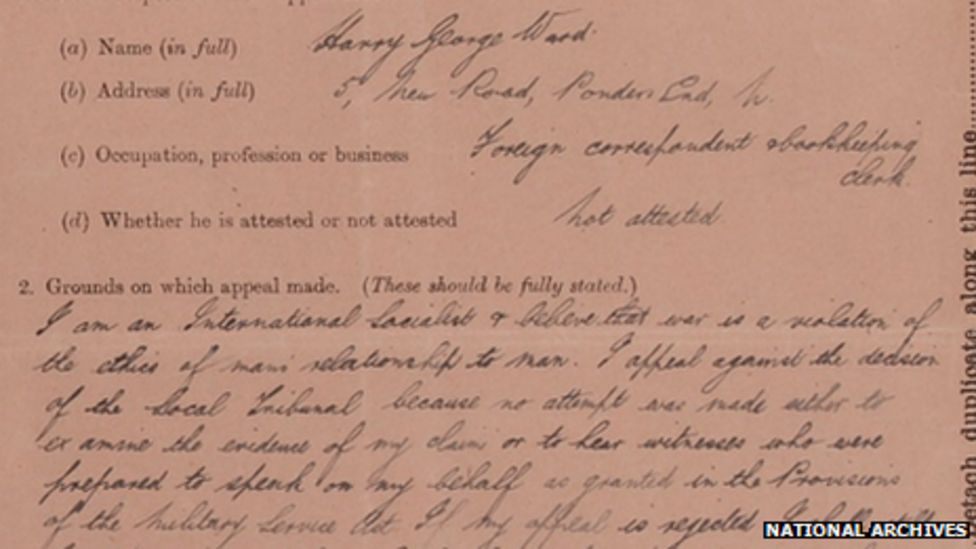 (a) Name (in full) Harry George Ward.
(b) Address (in full) 5, New Road, Ponders End, N.
(c) Occupation, profession or business Foreign correspondent & bookkeeping
clerk.
(d) Whether he is attested or not attested not attested.
2. Grounds on which appeal made. (These should be fully stated.)
I am an International Socialist & believe that war is a violation of
the ethics of mans relationship to man. I appeal against the decision
of the Local Tribunal because no attempt was made either to
examine the evidence of my claim or to hear witnesses who were
prepared to speak on my behalf as granted in the Provisions
of the Military Service Act. If my appeal is rejected I
duplicate along this line
NATIONAL ARCHIVES